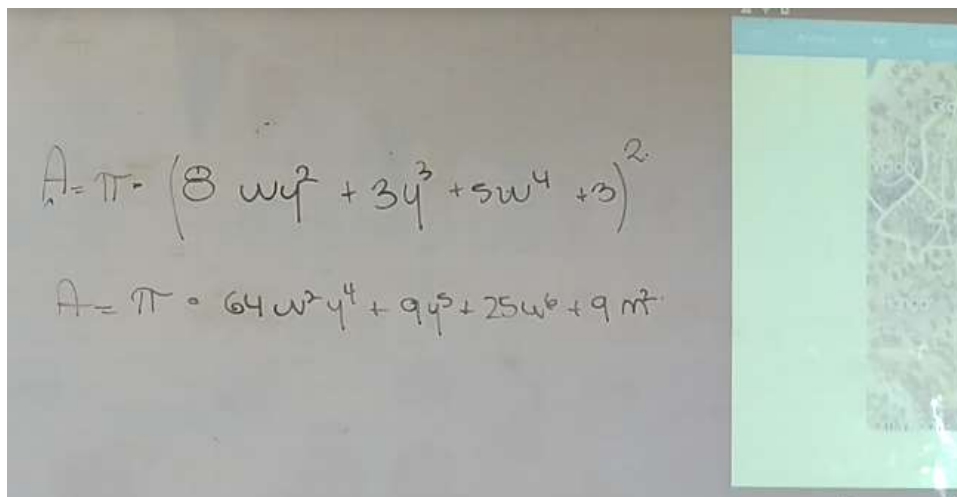 A = π · (8 wy² + 3y³ + 5w⁴ + 3)²
A = π · 64w²y⁴ + 9y⁵ + 25w⁶ + 9 m²